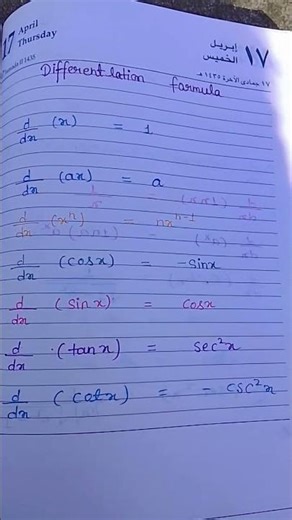 17 April
Thursday
١٧ إبريل
الخميس
١٧ جمادى الآخرة ١٤٣٥ هـ
Differentiation formula
d/dx (x) = 1
d/dx (ax) = a
d/dx (xⁿ) = nxⁿ⁻¹
d/dx (cosx) = -sinx
d/dx (sinx) = cosx
d/dx (tanx) = sec²x
d/dx (cotx) = - csc²x